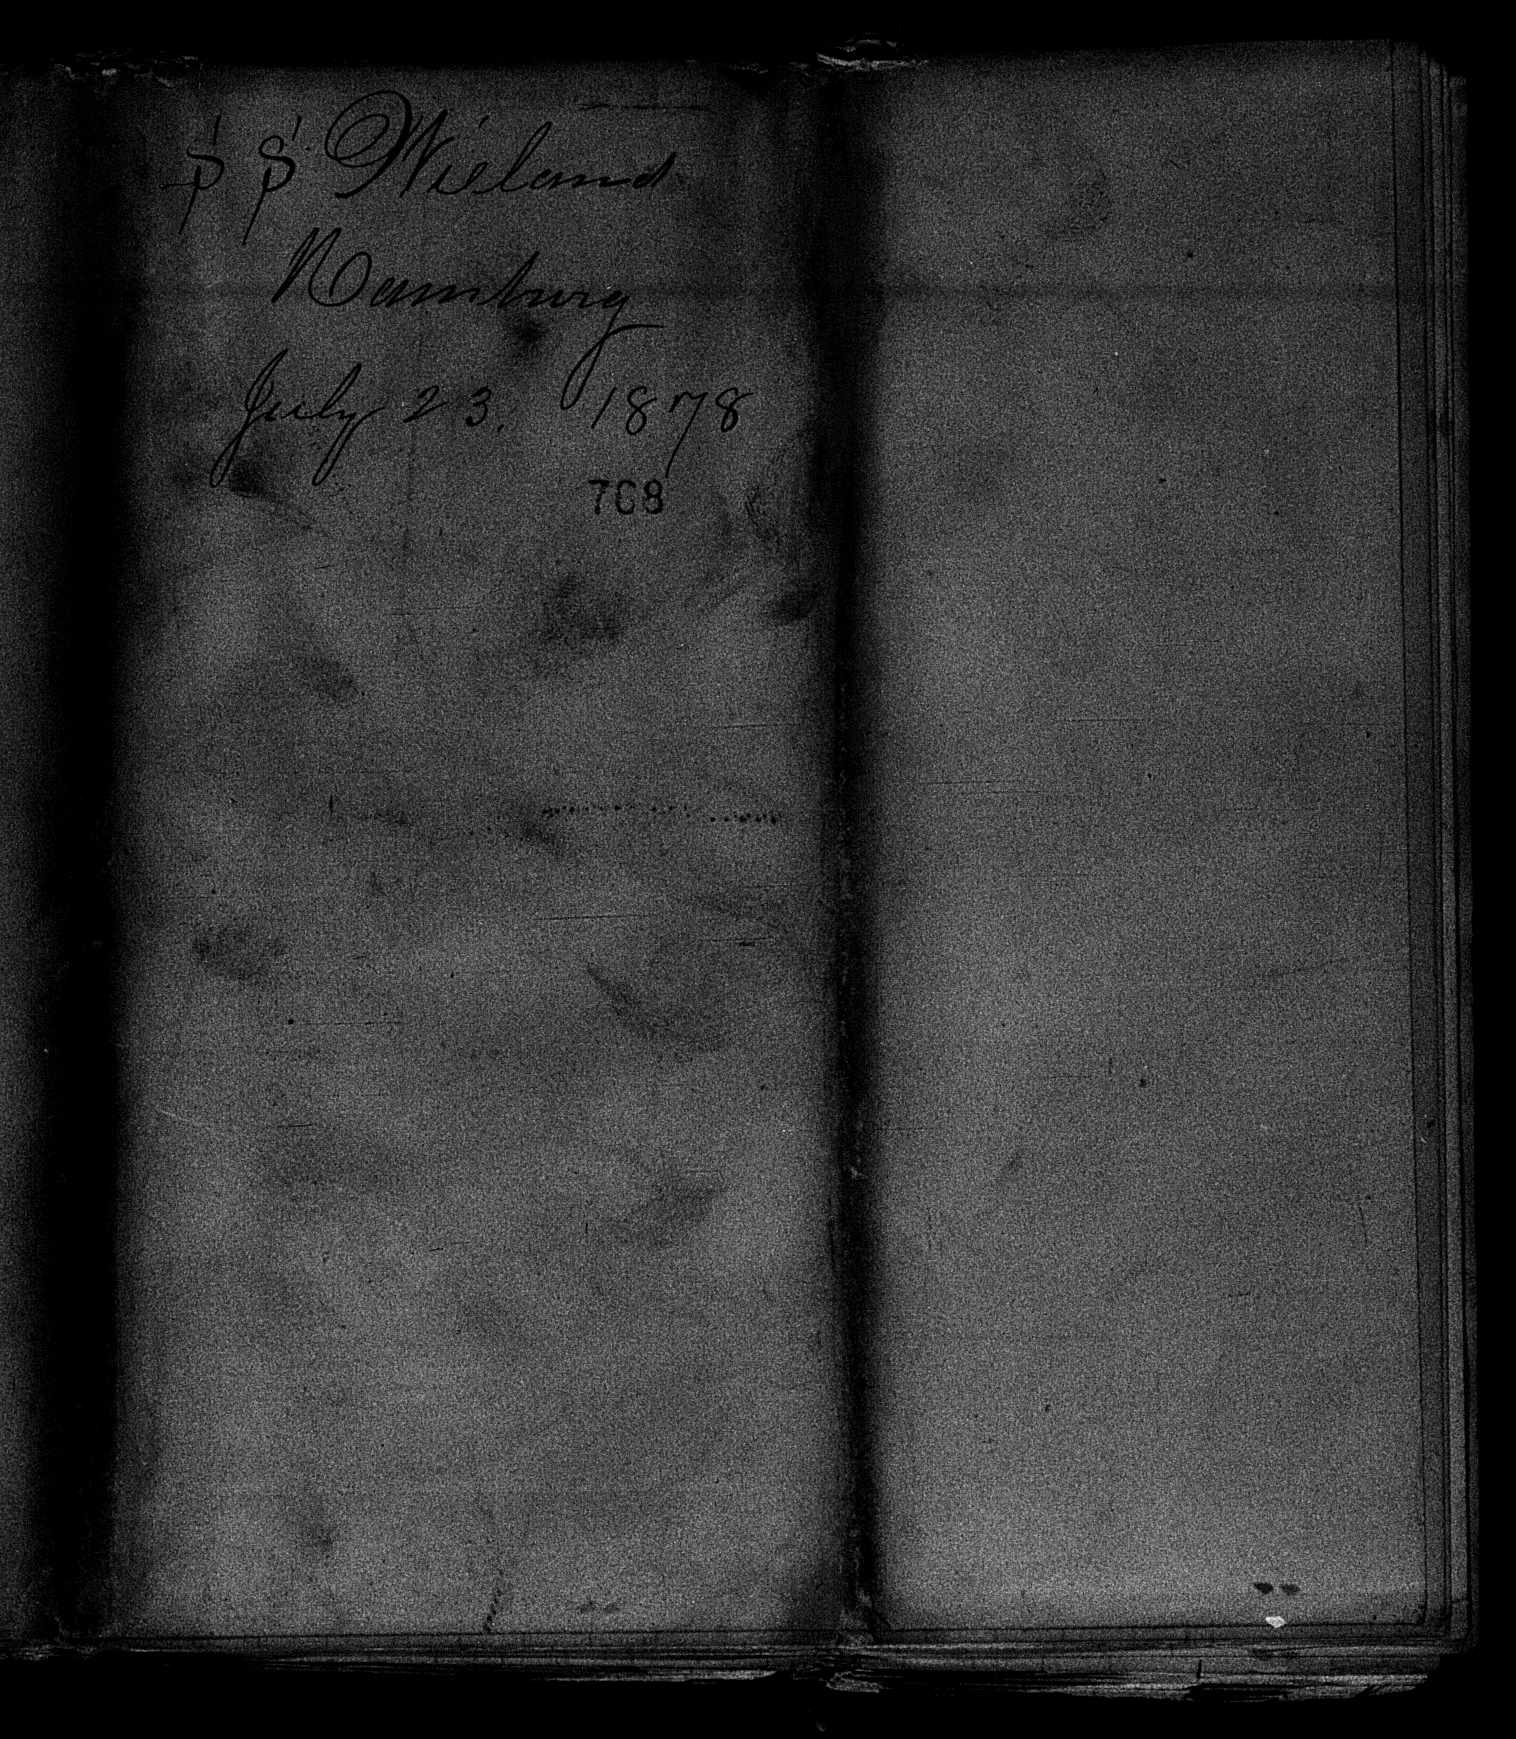 SS Wieland
Hamburg
July 23. 1878
768